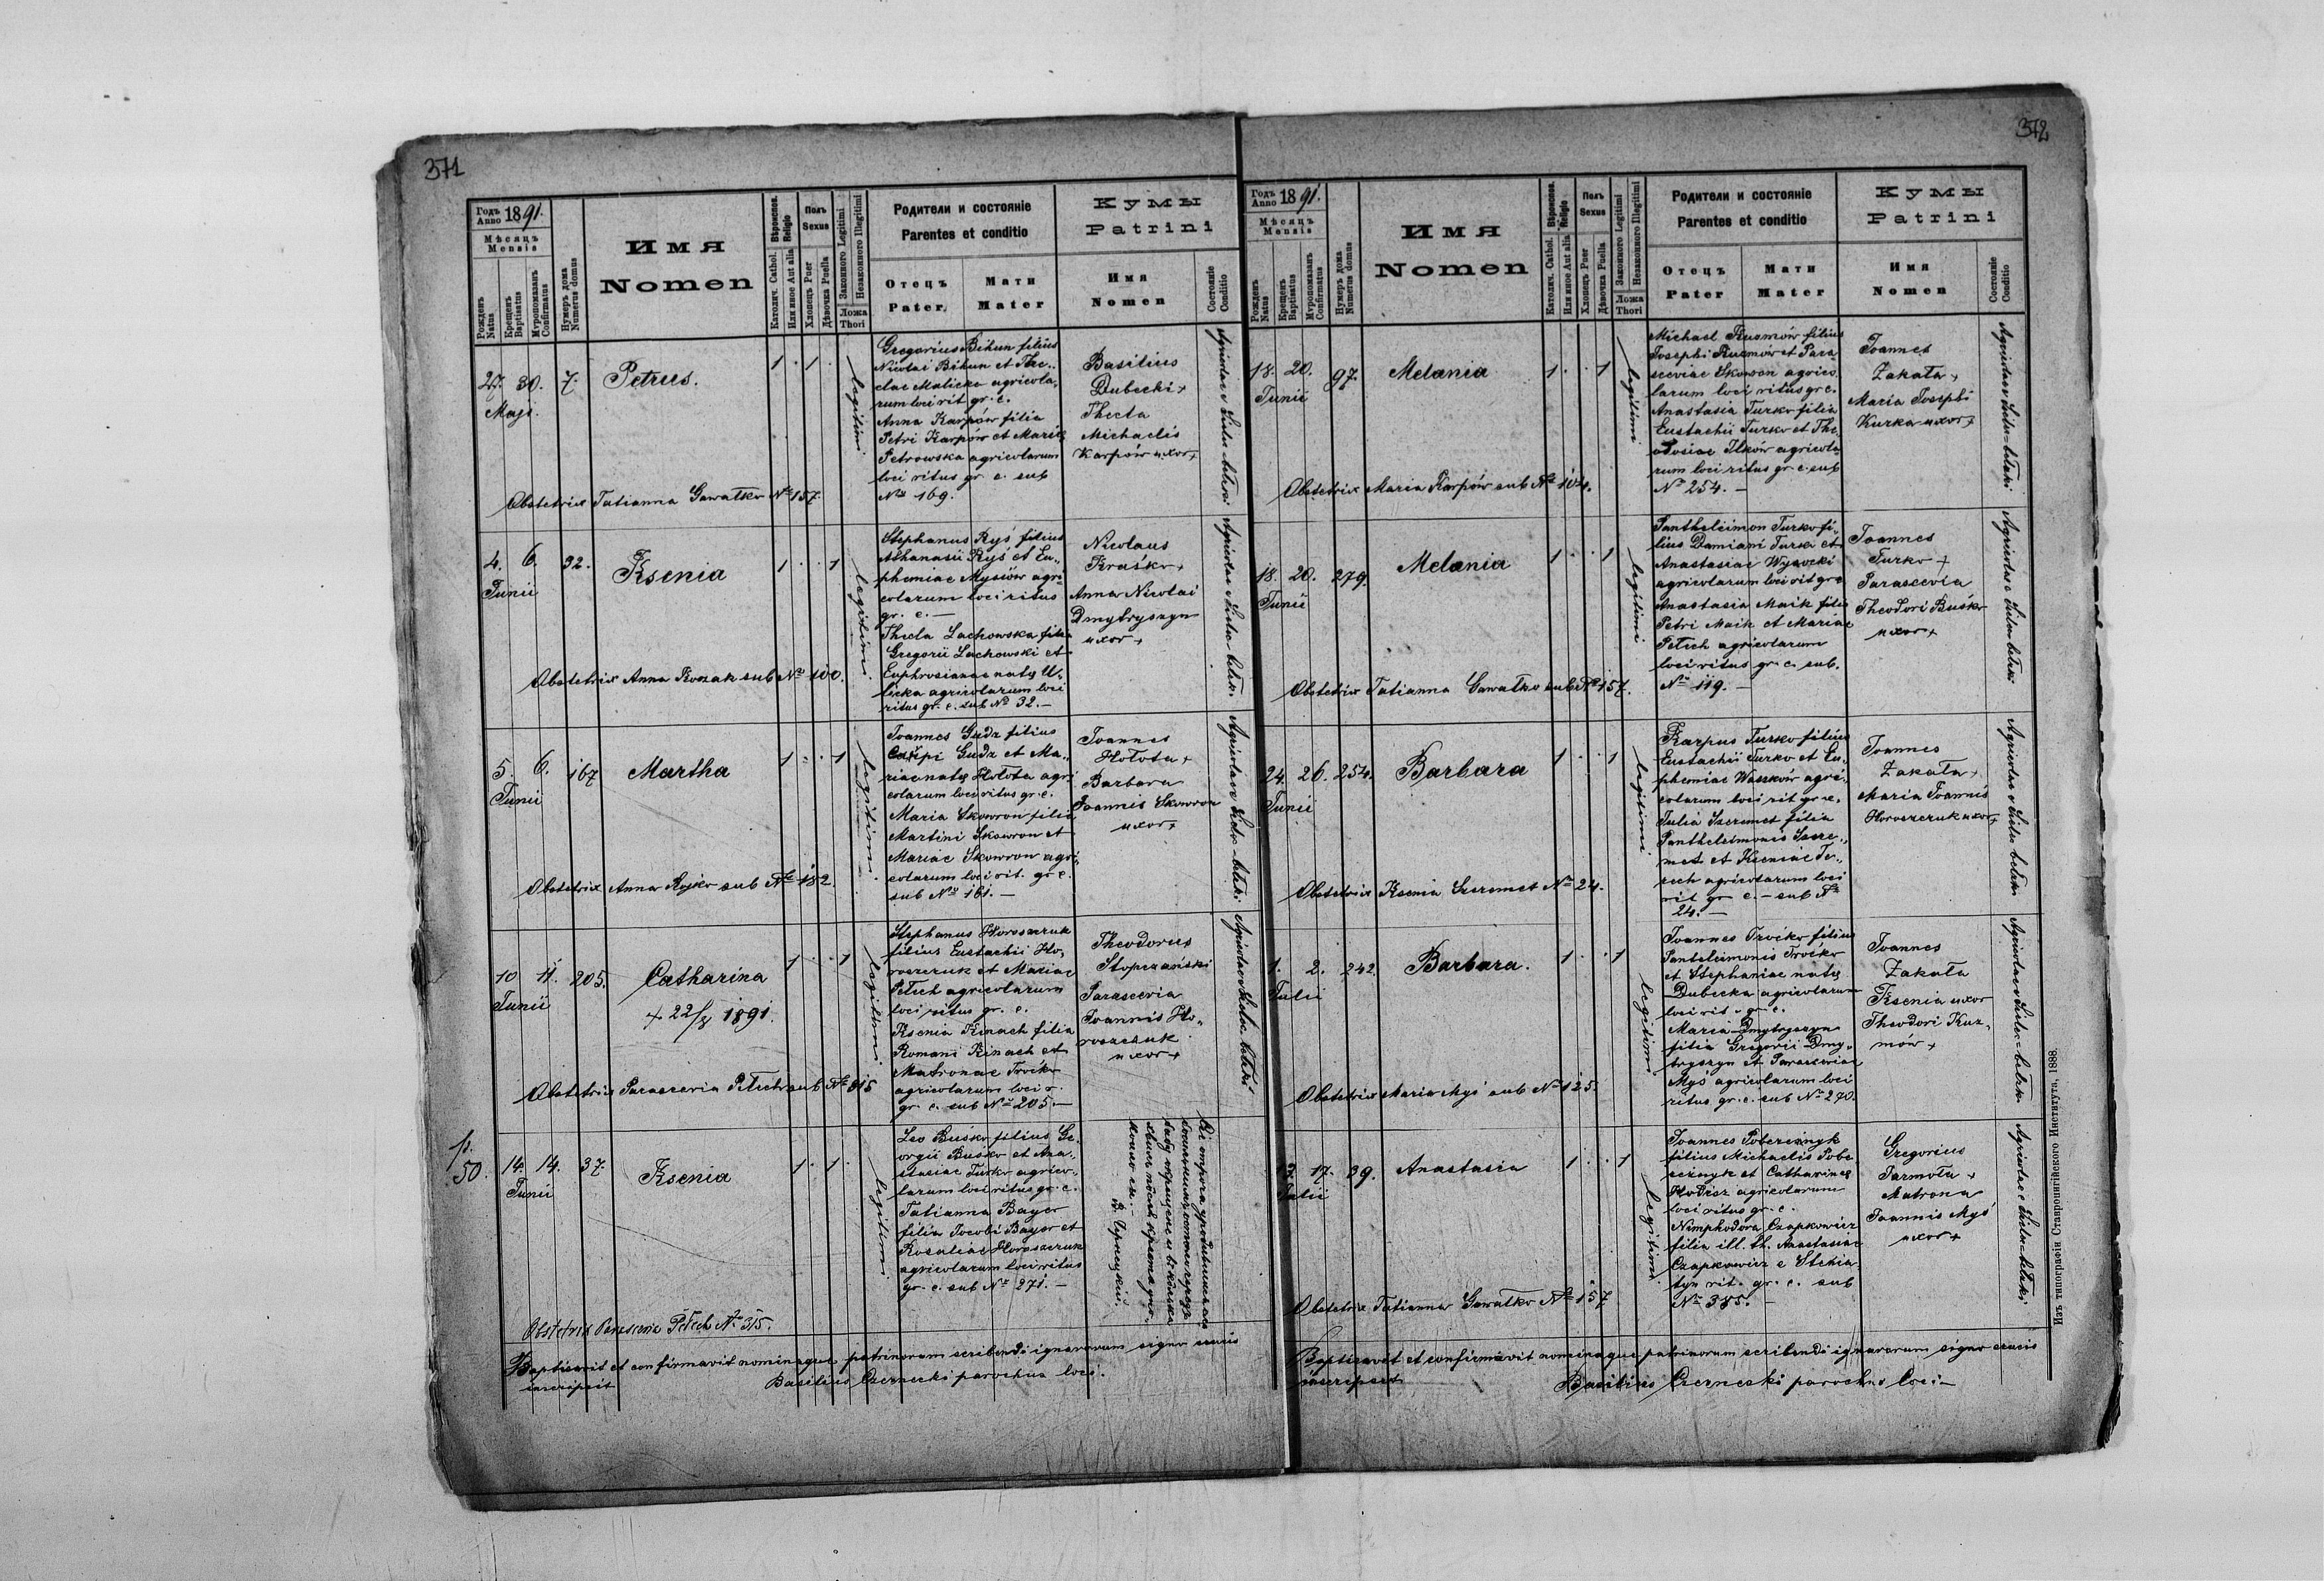 371
Годъ Anno 1891.
Мѣсяцъ
Mensis
Рожденъ Natus
Крещенъ Baptisatus
Мѵропомазанъ Confirmatus
Нумеръ дома Numerus domus
Имя
Nomen
Вѣроиспов. Religio
Католич. Cathol.
Или иное Aut alia
Полъ
Sexus
Хлопецъ Puer
Дѣвочка Puella
Законного Legitimi
Незаконного Illegitimi
Ложа
Thori
Родители и состоянiе
Parentes et conditio
Отецъ
Pater
Мати
Mater
Кумы
Patrini
Имя
Nomen
Состоянiе
Conditio
27. 30. 7. Petrus. 1 . 1 .
Maji.
legitimi
Gregorius Bihun filius
Nicolai Bihun et The„
clae Malicka agricola„
rum loci rit gr. c.
Anna Karpów filia
Petri Karpów et Mariae
Petrowska agricolarum
loci ritus gr. c. sub
№ 169.
Basilius
Dubecki +
Thecla
Michaelis
Karpów uxor +
Obstetrix Tatianna Gawałko № 157.
4. 6. 32. Ksenia 1 . . 1
Junii
legitimi
Stephanus Ryś filius
Athanasii Ryś et Eu„
phemiae Mysiów agri
colarum loci ritus
gr. c. —
Thecla Lachowska filia
Gregorii Lachowski et
Euphrosianae natae U„
licka agricolarum loci
ritus gr. c. sub № 32. —
Nicolaus
Kraśko +
Anna Nicolai
Dmytryszyn
uxor +
Obstetrix Anna Kozak sub № 100.
5. 6. 167 Martha 1 . . 1
Junii
legitimi
Joannes Gudz filius
Gudz et Ma„
riae natae Hołota agri
colarum loci ritus gr. c.
Maria Skowron filia
Martini Skowron et
Mariae Skowron agri„
colarum loci rit. gr c.
sub № 181. —
Joannes
Hołota +
Barbara
Joannis Skowron
uxor +
Obstetrix Anna Rojko sub № 182.
10 11. 205. Catharina 1 . . 1
Junii
+ 22/8 1891.
legitimi
Stephanus Horoszczuk
filius Eustachii Ho„
roszczuk et Mariae
Petech agricolarum
loci ritus gr. c.
Ksenia Kinach filia
Romani Kinach et
Matronae Troćko
agricolarum loci r.
gr. c. sub № 205. —
Theodorus
Stopczański
Parascevia
Joannis Ho„
roszczuk
uxor +
Obstetrix Parascevia Petech sub № 315
50.
14. 14. 37. Ksenia 1 . 1 .
Junii
legitimi
Leo Buśko filius Ge„
orgii Buśko et Ana„
stasiae Turko agrico„
larum loci ritus gr. c.
Tatianna Bayer
filia Jacobi Bayer et
Rosaliae Horoszczuk
agricolarum loci ritus
gr. c. sub № 271. —
Obstetrix Parascevia Petech № 315.
Baptisavit et confirmavit nominaque patrinorum scribendi ignarorum signo crucis
inscripsit Basilius Czernecki parochus loci.
372
Годъ Anno 1891.
Мѣсяцъ
Mensis
Рожденъ Natus
Крещенъ Baptisatus
Мѵропомазанъ Confirmatus
Нумеръ дома Numerus domus
Имя
Nomen
Вѣроиспов. Religio
Католич. Cathol.
Или иное Aut alia
Полъ
Sexus
Хлопецъ Puer
Дѣвочка Puella
Законного Legitimi
Незаконного Illegitimi
Ложа
Thori
Родители и состоянiе
Parentes et conditio
Отецъ
Pater
Мати
Mater
Кумы
Patrini
Имя
Nomen
Состоянiе
Conditio
18. 20. 97. Melania 1 . . 1
Junii
legitimi
Michael Kuzmów filius
Josephi Kuzmów et Para
sceviae Skowron agrico„
larum loci ritus gr c.
Anastasia Turko filia
Eustachii Turko et The„
odosiae Ilków agricola
rum loci ritus gr. c. sub
№ 254. —
Joannes
Zakała +
Maria Josephi
Kurka uxor +
Obstetrix Maria Karpów sub № 104.
18. 20. 279. Melania 1 . . 1
Junii
legitimi
Pantheleimon Turko fi„
lius Damiani Turko et
Anastasiae Wysocki
agricolarum loci rit gr c
Anastasia Maik filia
Petri Maik et Mariae
Petech agricolarum
loci ritus gr. c. sub.
№ 119. —
Joannes
Turko +
Parascevia
Theodori Buśko
uxor +
Obstetrix Tatianna Gawałko sub № 157.
24. 26. 254. Barbara 1 . . 1
Junii
legitimi
Karpus Turko filius
Eustachii Turko et Eu„
phemiae Wasków agri„
colarum loci rit gr c.
Julia Szeremet filia
Pantheleimonis Szere„
met et Kseniae Te„
rech agricolarum loci
rit gr c. — sub №
24. —
Joannes
Zakała +
Maria Joannis
Horoszczuk uxor +
Obstetrix Ksenia Szeremet № 24.
1. 2. 242. Barbara. 1 . . 1
Julii
legitimi
Joannes Troćko filius
Panteleimonis Troćko
et Stephaniae natae
Dubecka agricolarum
loci rit. gr. c.
Maria Dmytryszyn
filia Gregorii Dmy„
tryszyn et Parasceviae
Myś agricolarum loci
ritus gr. c. sub № 270.
Joannes
Zakała
Ksenia uxor
Theodori Kuz„
mów +
Obstetrix Maria Myś sub № 125.
17. 39. Anastasia 1 . . 1
Julii
legitimi
Joannes Potereiznyk
filius Michaelis
et Catharinae
agricolarum
loci ritus gr. c.
Nimphodora Czapkowicz
filia ill. th. Anastasiae
Czapkowicz e Stehia
tyn rit. gr. c. sub
№ 385. —
Gregorius
Jarmoła +
Matrona
Joannis Myś
uxor +
Obstetrix Tatianna Gawałko № 157
Baptisavit et confirmavit nominaque patrinorum scribendi ignarorum signo crucis
inscripsit Basilius Czernecki parochus loci —
Изъ типографiи Ставропигiйского Института, 1888.